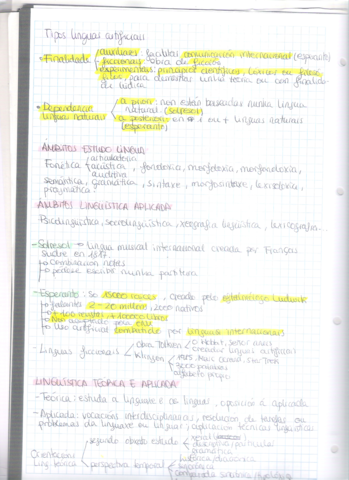 Tipos linguas artificiais
Finalidade
auxiliares: facilitar comunicación internacional (esperanto)
ficcionais: obra de ficción
experimentais: principios científicos, lóxicos ou filosó-
ficos, para demostrar unha teoría ou con finalidade
de lúdica
Dependencia
lingua natural
a priori: non están baseadas nunha lingua
natural (solresol)
a posteriori: en 1 ou + linguas naturais
(esperanto)
ÁMBITOS ESTUDO LINGUA
Fonética
articulatoria
acústica
auditiva
, fonoloxía, morfoloxía, morfonoloxía,
semántica, gramática, sintaxe, morfosintaxe, lexicoloxía,
pragmática
ÁMBITOS LINGÜÍSTICA APLICADA
Psicolingüística, sociolingüística, xeografía lingüística, lexicografía
- Solresol → Lingua musical internacional creada por François
Sudre en 1817.
Combinación notas
pódese escribir nunha partitura
- Esperanto: So 15000 raíces, creado polo oftalmólogo Ludwik
falantes 2-20 millóns, 2000 nativos
+ 100 revistas, + 10000 libros
Non adoptado pola ONU
Uso artificial combatido por linguas internacionais
- Linguas ficcionais
obra Tolkien
O Hobbit, Señor aneis
creador linguas artificiais
Klingon
1985 Marc Okrand, Star Trek
3000 palabras
alfabeto propio
LINGÜÍSTICA TEÓRICA E APLICADA
- Teórica: estuda a linguaxe e as linguas, oposición á aplicada
- Aplicada: vocación interdisciplinaria, resolución de tarefas ou
problemas da linguaxe ou lingua, aplicación técnicas lingüísticas
Orientacións
Ling. teórica
segundo obxeto estudo
xeral
descriptiva/particular
gramática
perspectiva temporal
histórica/diacrónica
sincrónica
comparada